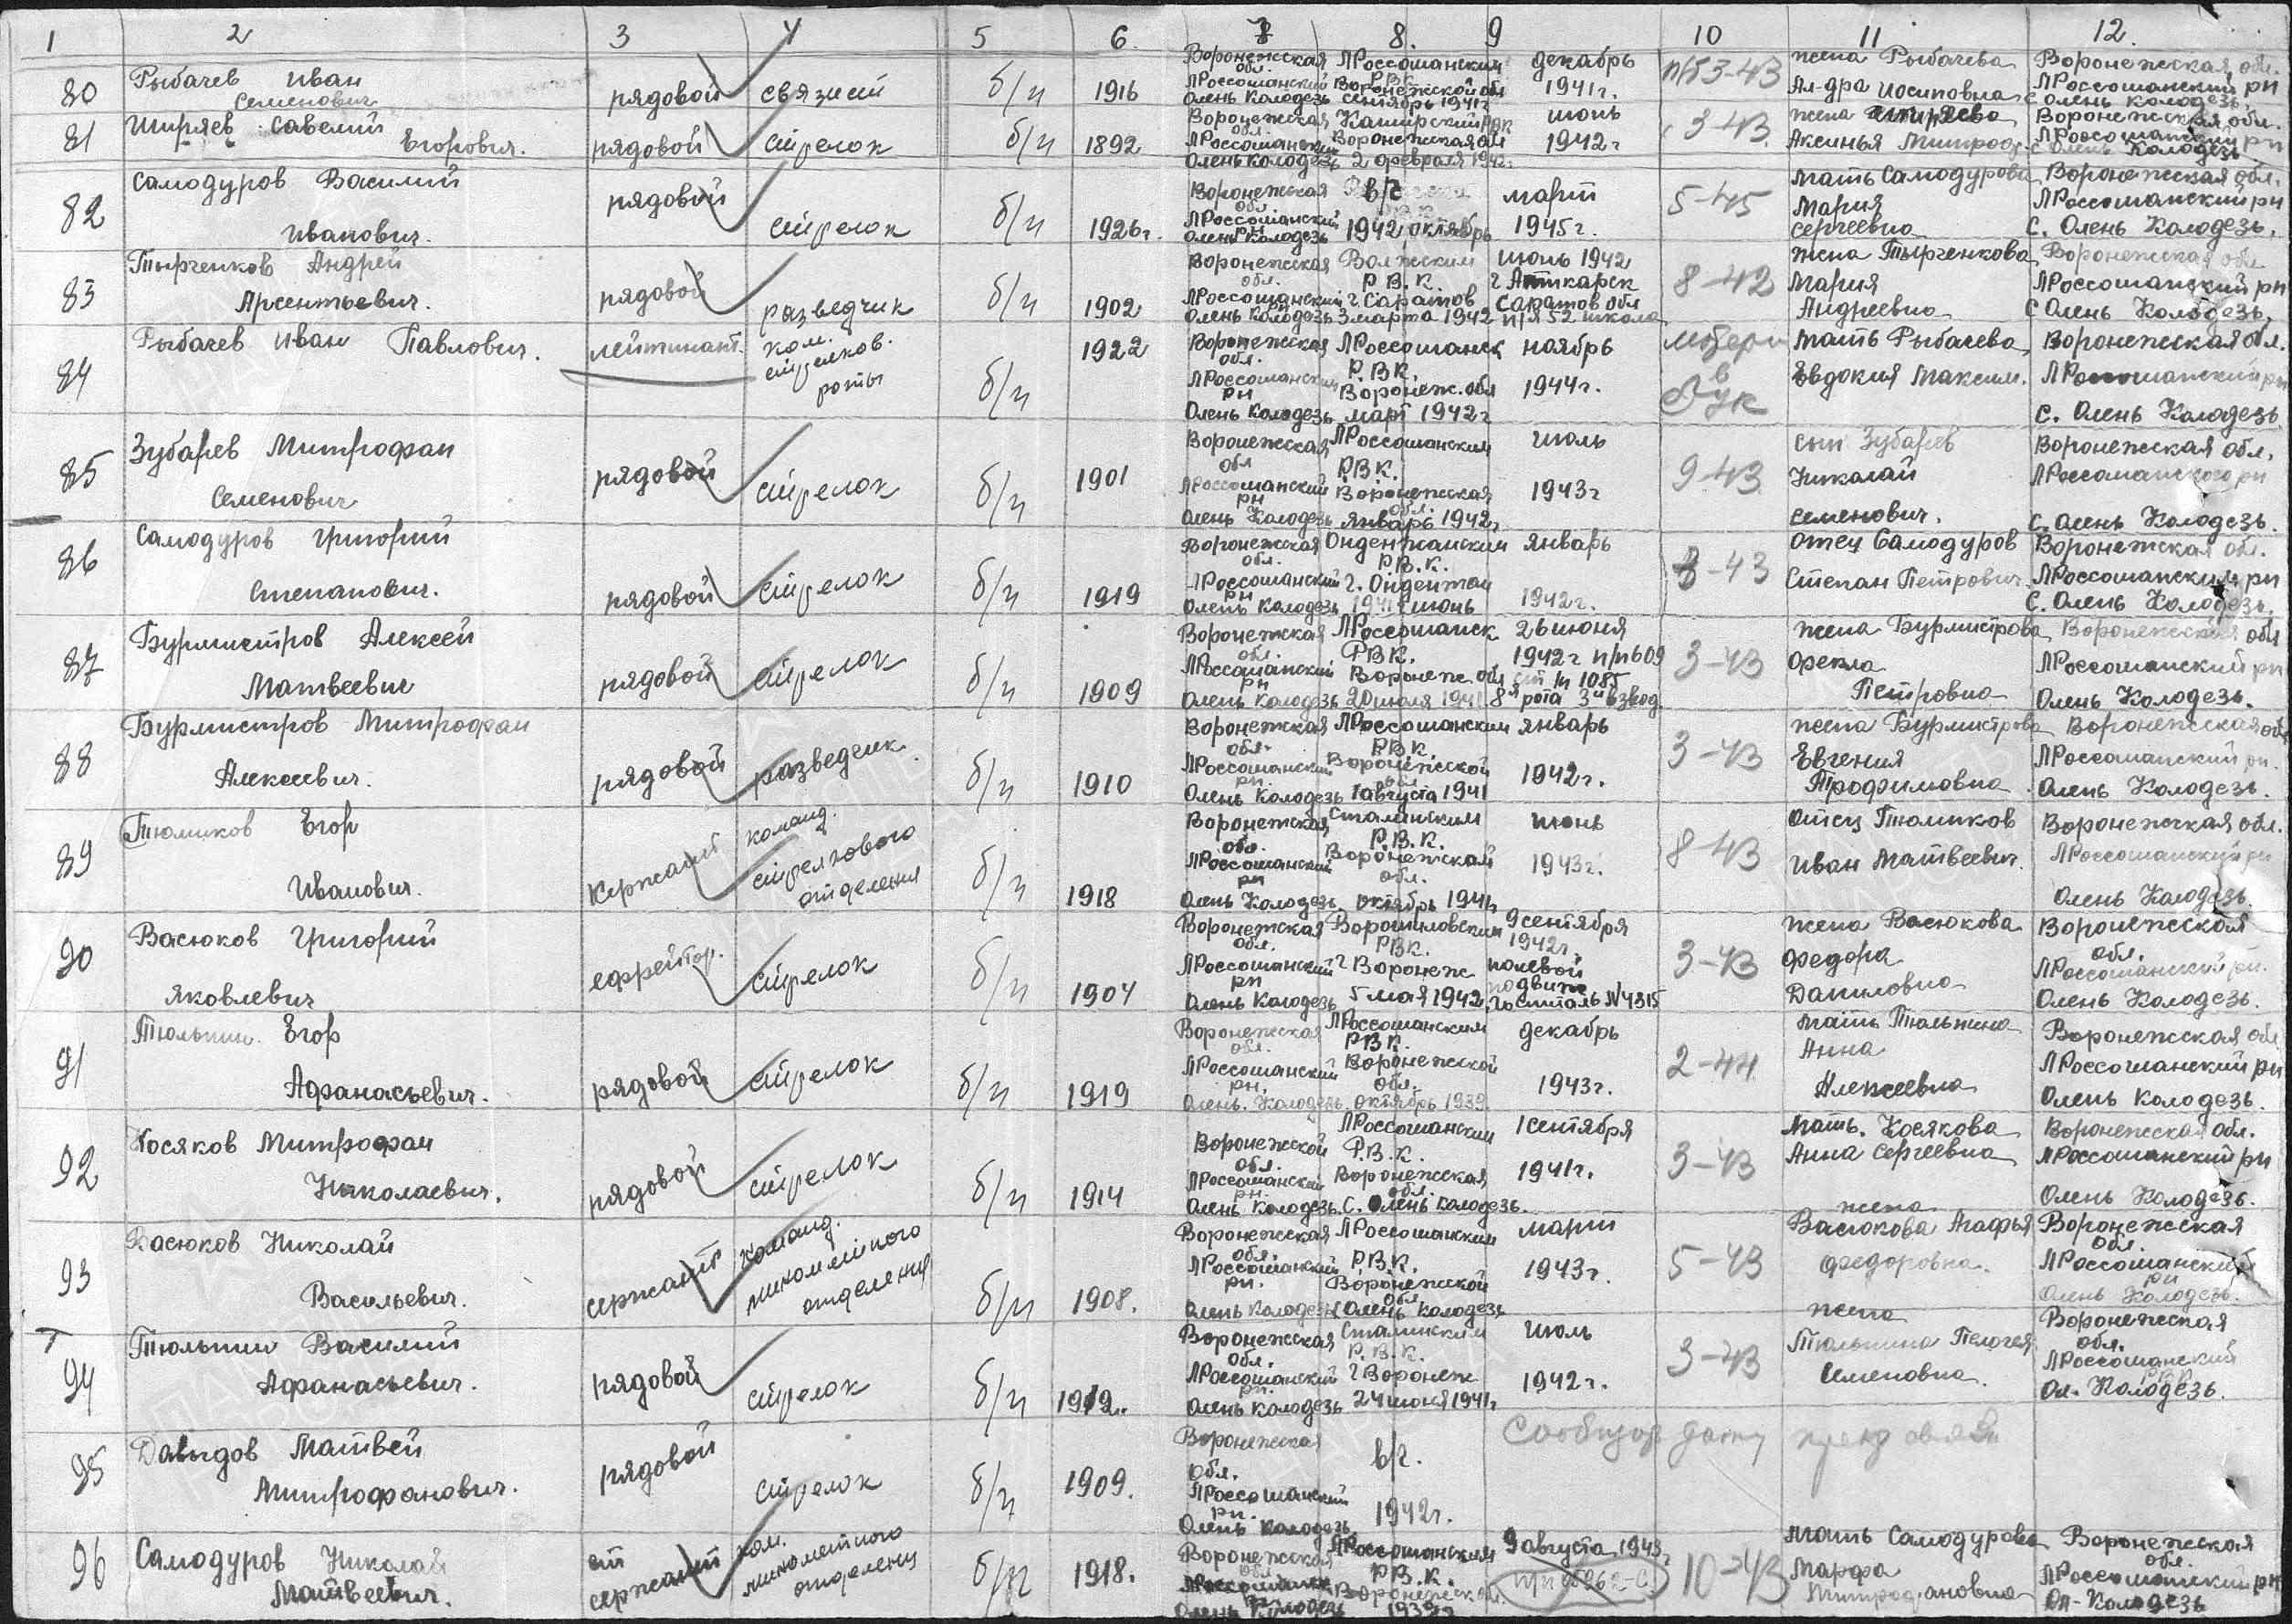 1 2 3 4 5 6 7 8. 9 10 11 12.
80 Рыбачев Иван Семенович рядовой связной б/п 1916 Воронежская обл. Л Россошанский Олень Колодезь Л Россошанским Р.В.К. Воронежской обл сентябрь 1941г декабрь 1941г. 3-43 жена Рыбачева Ал-дра Иосиповна Воронежская обл. Л Россошанский рн с Олень Колодезь.
81 Ширяев Савелий Егорович. рядовой стрелок б/п 1892 Воронежская обл. Л Россошанский Олень Колодезь Каширский рвк Воронежская обл 2 февраля 1942г. июнь 1942г 3-43 жена Ширяева Аксинья Митроф. Воронежская обл. Л Россошанский рн с Олень Колодезь
82 Самодуров Василий Иванович. рядовой стрелок б/п 1926г. Воронежская обл. Л Россошанский рн Олень Колодезь в/ч 1942 октябрь март 1945г. 5-45 мать Самодурова Мария Сергеевна Воронежская обл. Л Россошанский рн с. Олень Колодезь.
83 Тырченков Андрей Арсентьевич. рядовой разведчик б/п 1902 Воронежская обл. Л Россошанский Олень Колодезь Волжским Р.В.К. г Саратов 3 марта 1942 июнь 1942 г Аткарск Саратов обл п/я 52 школа 8-42 жена Тырченкова Мария Андреевна Воронежская обл Л Россошанский рн с Олень Колодезь.
84 Рыбачев Иван Павлович. лейтинант. ком. стрелков. роты б/п 1922 Воронежская обл. Л Россошанский рн Олень Колодезь Л Россошанск Р.В.К. Воронеж. обл март 1942г ноябрь 1944г. в мать Рыбачева Евдокия Максим. Воронежская обл. Л Россошанский рн с. Олень Колодезь
85 Зубарев Митрофан Семенович рядовой стрелок б/п 1901 Воронежская обл Л Россошанский рн Олень Колодезь Л Россошанским Р.В.К. Воронежская обл. январь 1942г июль 1943г 9-43 сын Зубарев Николай Семенович. Воронежская обл. Л Россошанского рн с. Олень Колодезь.
86 Самодуров Григорий Степанович. рядовой стрелок б/п 1919 Воронежская обл. Л Россошанский рн Олень Колодезь Онденжанским Р.В.К. г. Ондентан 1941г июнь январь 1942г. 3-43 отец Самодуров Степан Петрович Воронежская обл. Л Россошанским рн с. Олень Колодезь.
87 Бурмистров Алексей Матвеевич рядовой стрелок б/п 1909 Воронежская обл. Л Россошанский рн Олень Колодезь Л Россошанск РВК. Воронеж обл 20 июля 1941 26 июня 1942г п/п 609 1085 8я рота 3й взвод 3-43 жена Бурмистрова Фекла Петровна Воронежская обл Л Россошанский рн Олень Колодезь.
88 Бурмистров Митрофан Алексеевич. рядовой разведчик б/п 1910 Воронежская обл. Л Россошанский рн. Олень Колодезь Л Россошанским Р.В.К. Воронежской обл 1 августа 1941 январь 1942г. 3-43 жена Бурмистрова Евгения Трофимовна Воронежская обл Л Россошанский рн. Олень Колодезь.
89 Тюмиков Егор Иванович. сержант команд. стрелкового отделения б/п 1918 Воронежская обл. Л Россошанский рн Олень Колодезь. Сталинским Р.В.К. Воронежской обл. октябрь 1941г июнь 1943г. 8-43 отец Тюмиков Иван Матвеевич. Воронежская обл. Л Россошанский рн Олень Колодезь.
90 Васюков Григорий Яковлевич ефрейтор. стрелок б/п 1904 Воронежская обл. Л Россошанский рн Олень Колодезь Ворошиловским РВК. г Воронеж 5 мая 1942 9 сентября 1942г. полевой подвиж госпиталь №4315 3-43 жена Васюкова Федора Даниловна Воронежская обл. Л Россошанский рн. Олень Колодезь.
91 Тюльпин Егор Афанасьевич. рядовой стрелок б/п 1919 Воронежская обл. Л Россошанский рн. Олень. Колодезь. Л Россошанским РВК. Воронежской обл. октябрь 1939 декабрь 1943г. 2-44 мать Тюльпина Анна Алексеевна Воронежская обл Л Россошанский рн Олень Колодезь.
92 Косяков Митрофан Николаевич. рядовой стрелок б/п 1914 Воронежской обл. Л Россошанский рн. Олень Колодезь. Л Россошанским Р.В.К. Воронежская обл. с. Олень Колодезь. 1 сентября 1941г. 3-43 Мать. Косякова Анна Сергеевна Воронежская обл. Л Россошанский рн Олень Колодезь.
93 Васюков Николай Васильевич. сержант команд. минометного отделения б/п 1908. Воронежская обл. Л Россошанский рн. Олень Колодезь Л Россошанским Р.В.К. Воронежской обл. Олень Колодезь март 1943г. 5-43 жена Васюкова Агафья Федоровна. Воронежская обл. Л Россошанский рн Олень Колодезь.
94 Тюльпин Василий Афанасьевич. рядовой стрелок б/п 1912.. Воронежская обл. Л Россошанский рн. Олень Колодезь Сталинским Р.В.К. г Воронеж 24 июня 1941г июль 1942г. 3-43 жена Тюльпина Пелогея Семеновна. Воронежская обл. Л Россошанский Ол. Колодезь.
95 Давыдов Матвей Митрофанович. рядовой стрелок б/п 1909. Воронежская обл. Л Россошанский рн. Олень Колодезь. в/ч. 1942г.
96 Самодуров Николай Матвеевич. ст сержант ком. минометного отделения б/п 1918. Воронежская обл. Олень Колодезь Л Россошанским РВ.К. Воронежской 1939г 9 августа 1943г 10-43 мать Самодурова Марфа Митрофановна Воронежская обл. Л Россошанский рн Ол-Колодезь